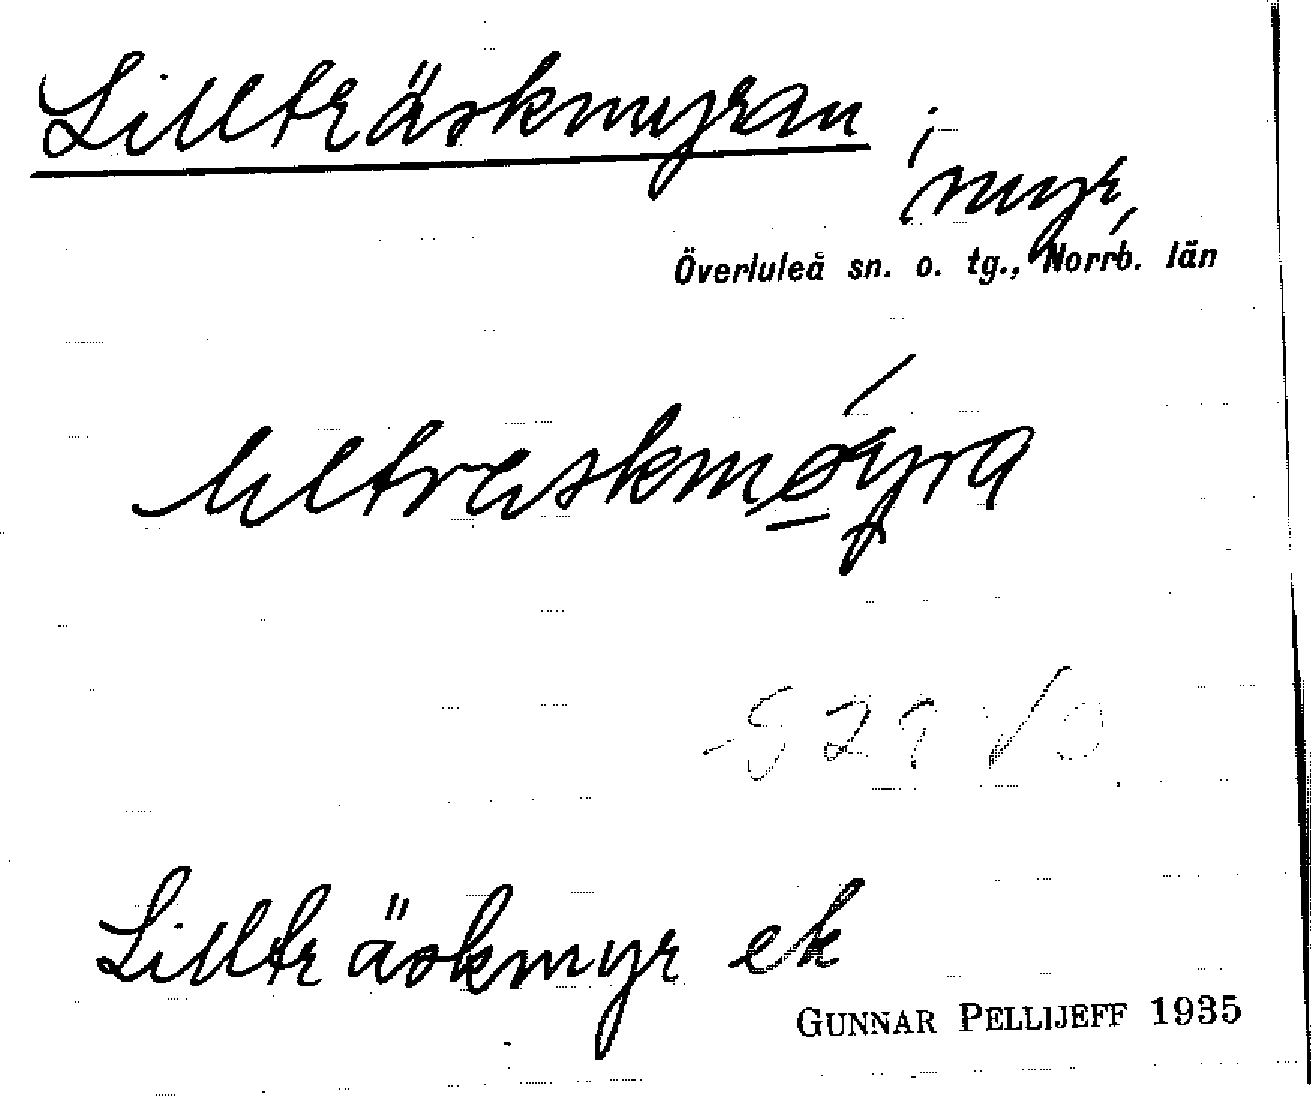 Lillträskmyran,
myr,
Överluleå sn. o. tg., Norrb. län
Lillträskmyr ek
GUNNAR PELLIJEFF 1935